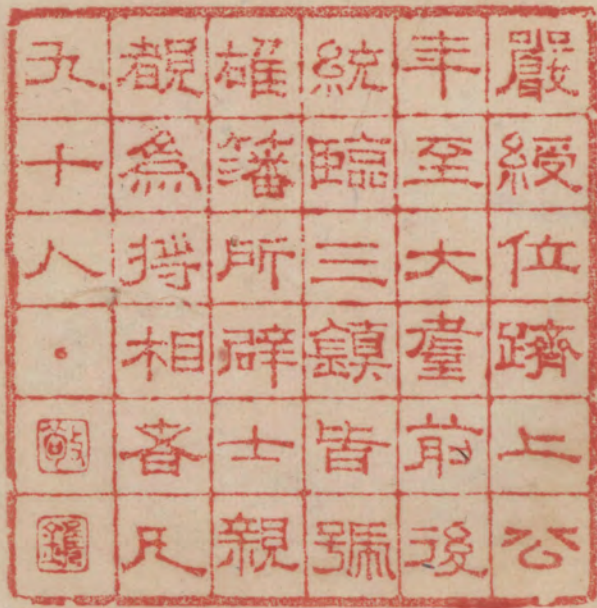 嚴綬位躋上公
年至大耋前後
統臨三鎮皆號
雄籓所辟士親
覩為將相者凡
九十人・